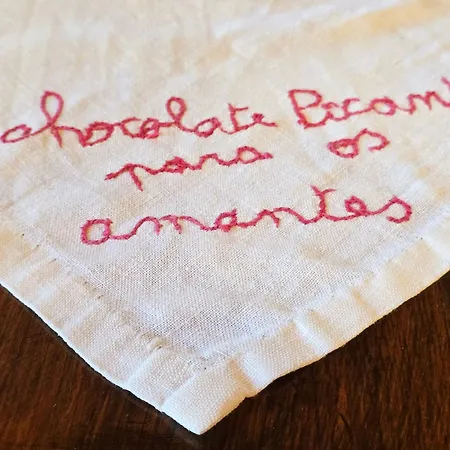 chocolate Pican
para os
amantes